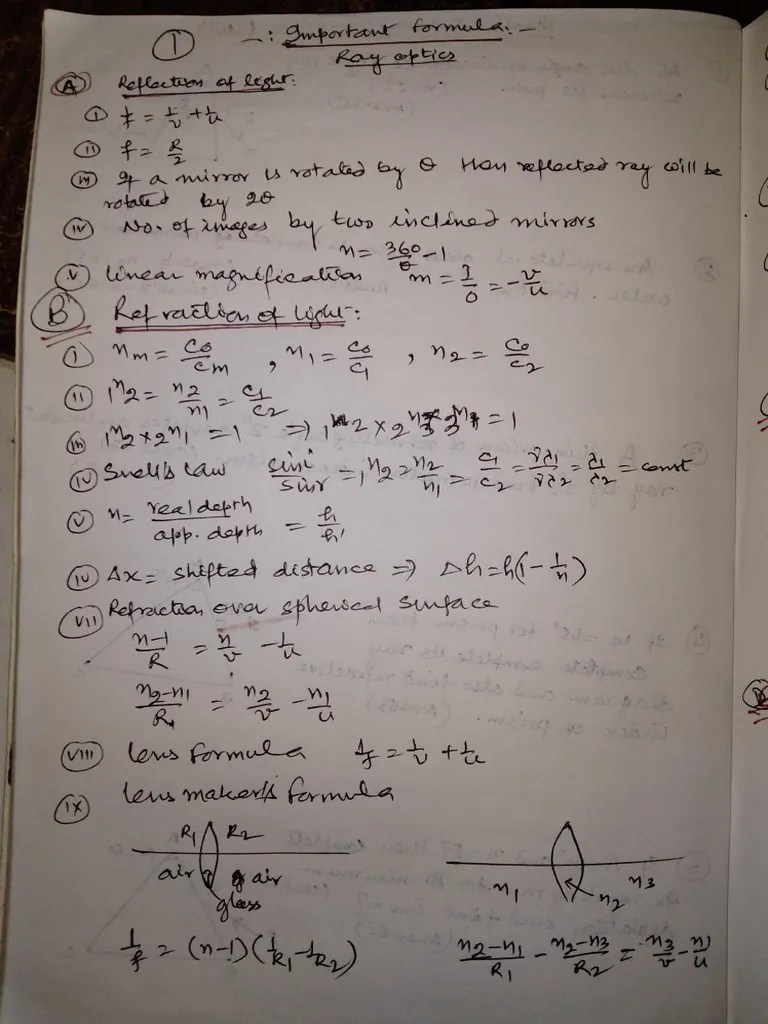 ① -: Important formula: -
Ray optics
Ⓐ Reflection of light:
ⓘ 1/f = 1/v + 1/u
ⓘⓘ f = R/2
ⓘⓘⓘ If a mirror is rotated by θ then reflected ray will be
rotated by 2θ
ⓘⓥ No. of images by two inclined mirrors
n = 360/θ - 1
ⓥ linear magnification m = I/O = -v/u
Ⓑ Refraction of light:
ⓘ nm = c0/cm , n1 = c0/c1 , n2 = c0/c2
ⓘⓘ 1n2 = n2/n1 = c1/c2
ⓘⓘⓘ 1n2 × 2n1 = 1 ⇒ 1n2 × 2n3 × 3n1 = 1
ⓘⓥ Snell's law sini/sinr = 1n2 = n2/n1 = c1/c2 = νλ1/νλ2 = λ1/λ2 = const
ⓥ n = real depth/app. depth = h/h'
ⓘⓥ Δx = shifted distance ⇒ Δh = h(1 - 1/n)
ⓥⓘⓘ Refraction over spherical surface
n-1/R = n/v - 1/u
n2-n1/R1 = n2/v - n1/u
ⓥⓘⓘⓘ lens formula 1/f = 1/v + 1/u
ⓘⓧ lens maker's formula
R1 R2
air air
glass
n1 n2 n3
1/f = (n-1)(1/R1 - 1/R2) n2-n1/R1 - n2-n3/R2 = n3/v - n1/u